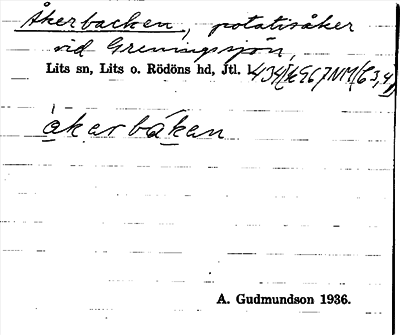 Åkerbacken, potatisåker
vid Greningssjön,
Lits sn, Lits o. Rödöns hd, Jtl. l.
åkarbákan
A. Gudmundson 1936.